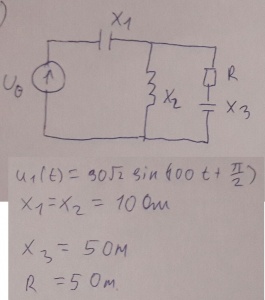 )
X₁
U₀
X₂
R
X₃
u₁(t) = 30√2 sin(400t + π/2)
X₁ = X₂ = 10 Ом
X₃ = 5 Ом
R = 5 Ом.